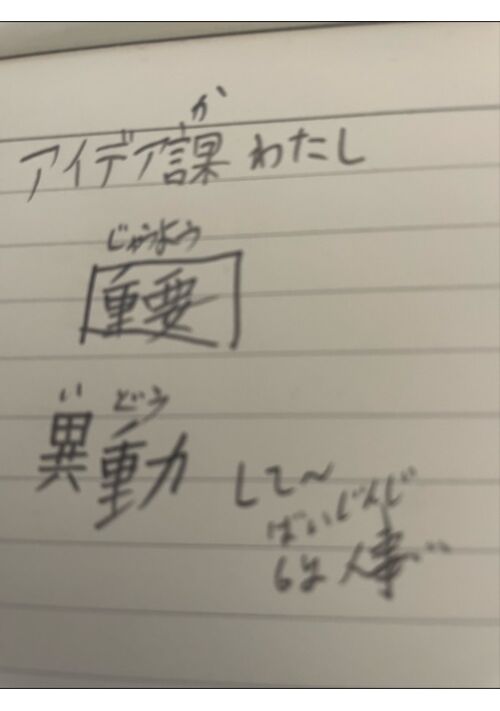 か
アイデア課 わたし
じゅうよう
重要
い どう
異動
して〜
じんじ
人事